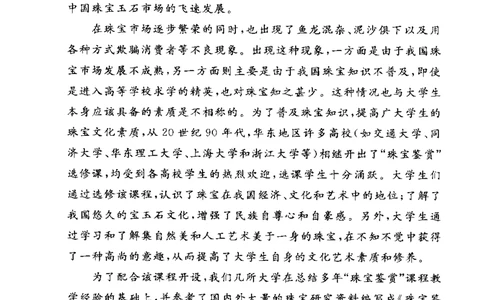 中国珠宝玉石市场的飞速发展。
在珠宝市场逐步繁荣的同时,也出现了鱼龙混杂、泥沙俱下以及用
各种方式欺骗消费者等不良现象。出现这种现象,一方面是由于我国珠
宝市场发展不成熟,另一方面则主要是由于我国珠宝知识不普及,即使
是进入高等学校求学的精英,也对珠宝知之甚少。这种情况也与大学生
本身应该具备的素质是不相称的。为了普及珠宝知识,提高广大学生的
珠宝文化素质,从 20 世纪 90 年代,华东地区许多高校(如交通大学、同
济大学、华东理工大学、上海大学和浙江大学等)相继开出了“珠宝鉴赏”
选修课,均受到各高校学生的热烈欢迎,选课学生十分涌跃。大学生们
通过选修该课程,认识了珠宝在我国经济、文化和艺术中的地位;了解了
我国悠久的宝玉石文化,增强了民族自尊心和自豪感。另外,大学生通
过学习和了解集自然美和人工艺术美于一身的珠宝,在不知不觉中获得
了一种高尚的趣意,从而提高了大学生自身的文化艺术素质和修养。
为了配合该课程开设,我们几所大学在总结多年“珠宝鉴赏”课程教
学经验的基础上,并参考了国内外大量的珠宝研究资料编写成《珠宝鉴